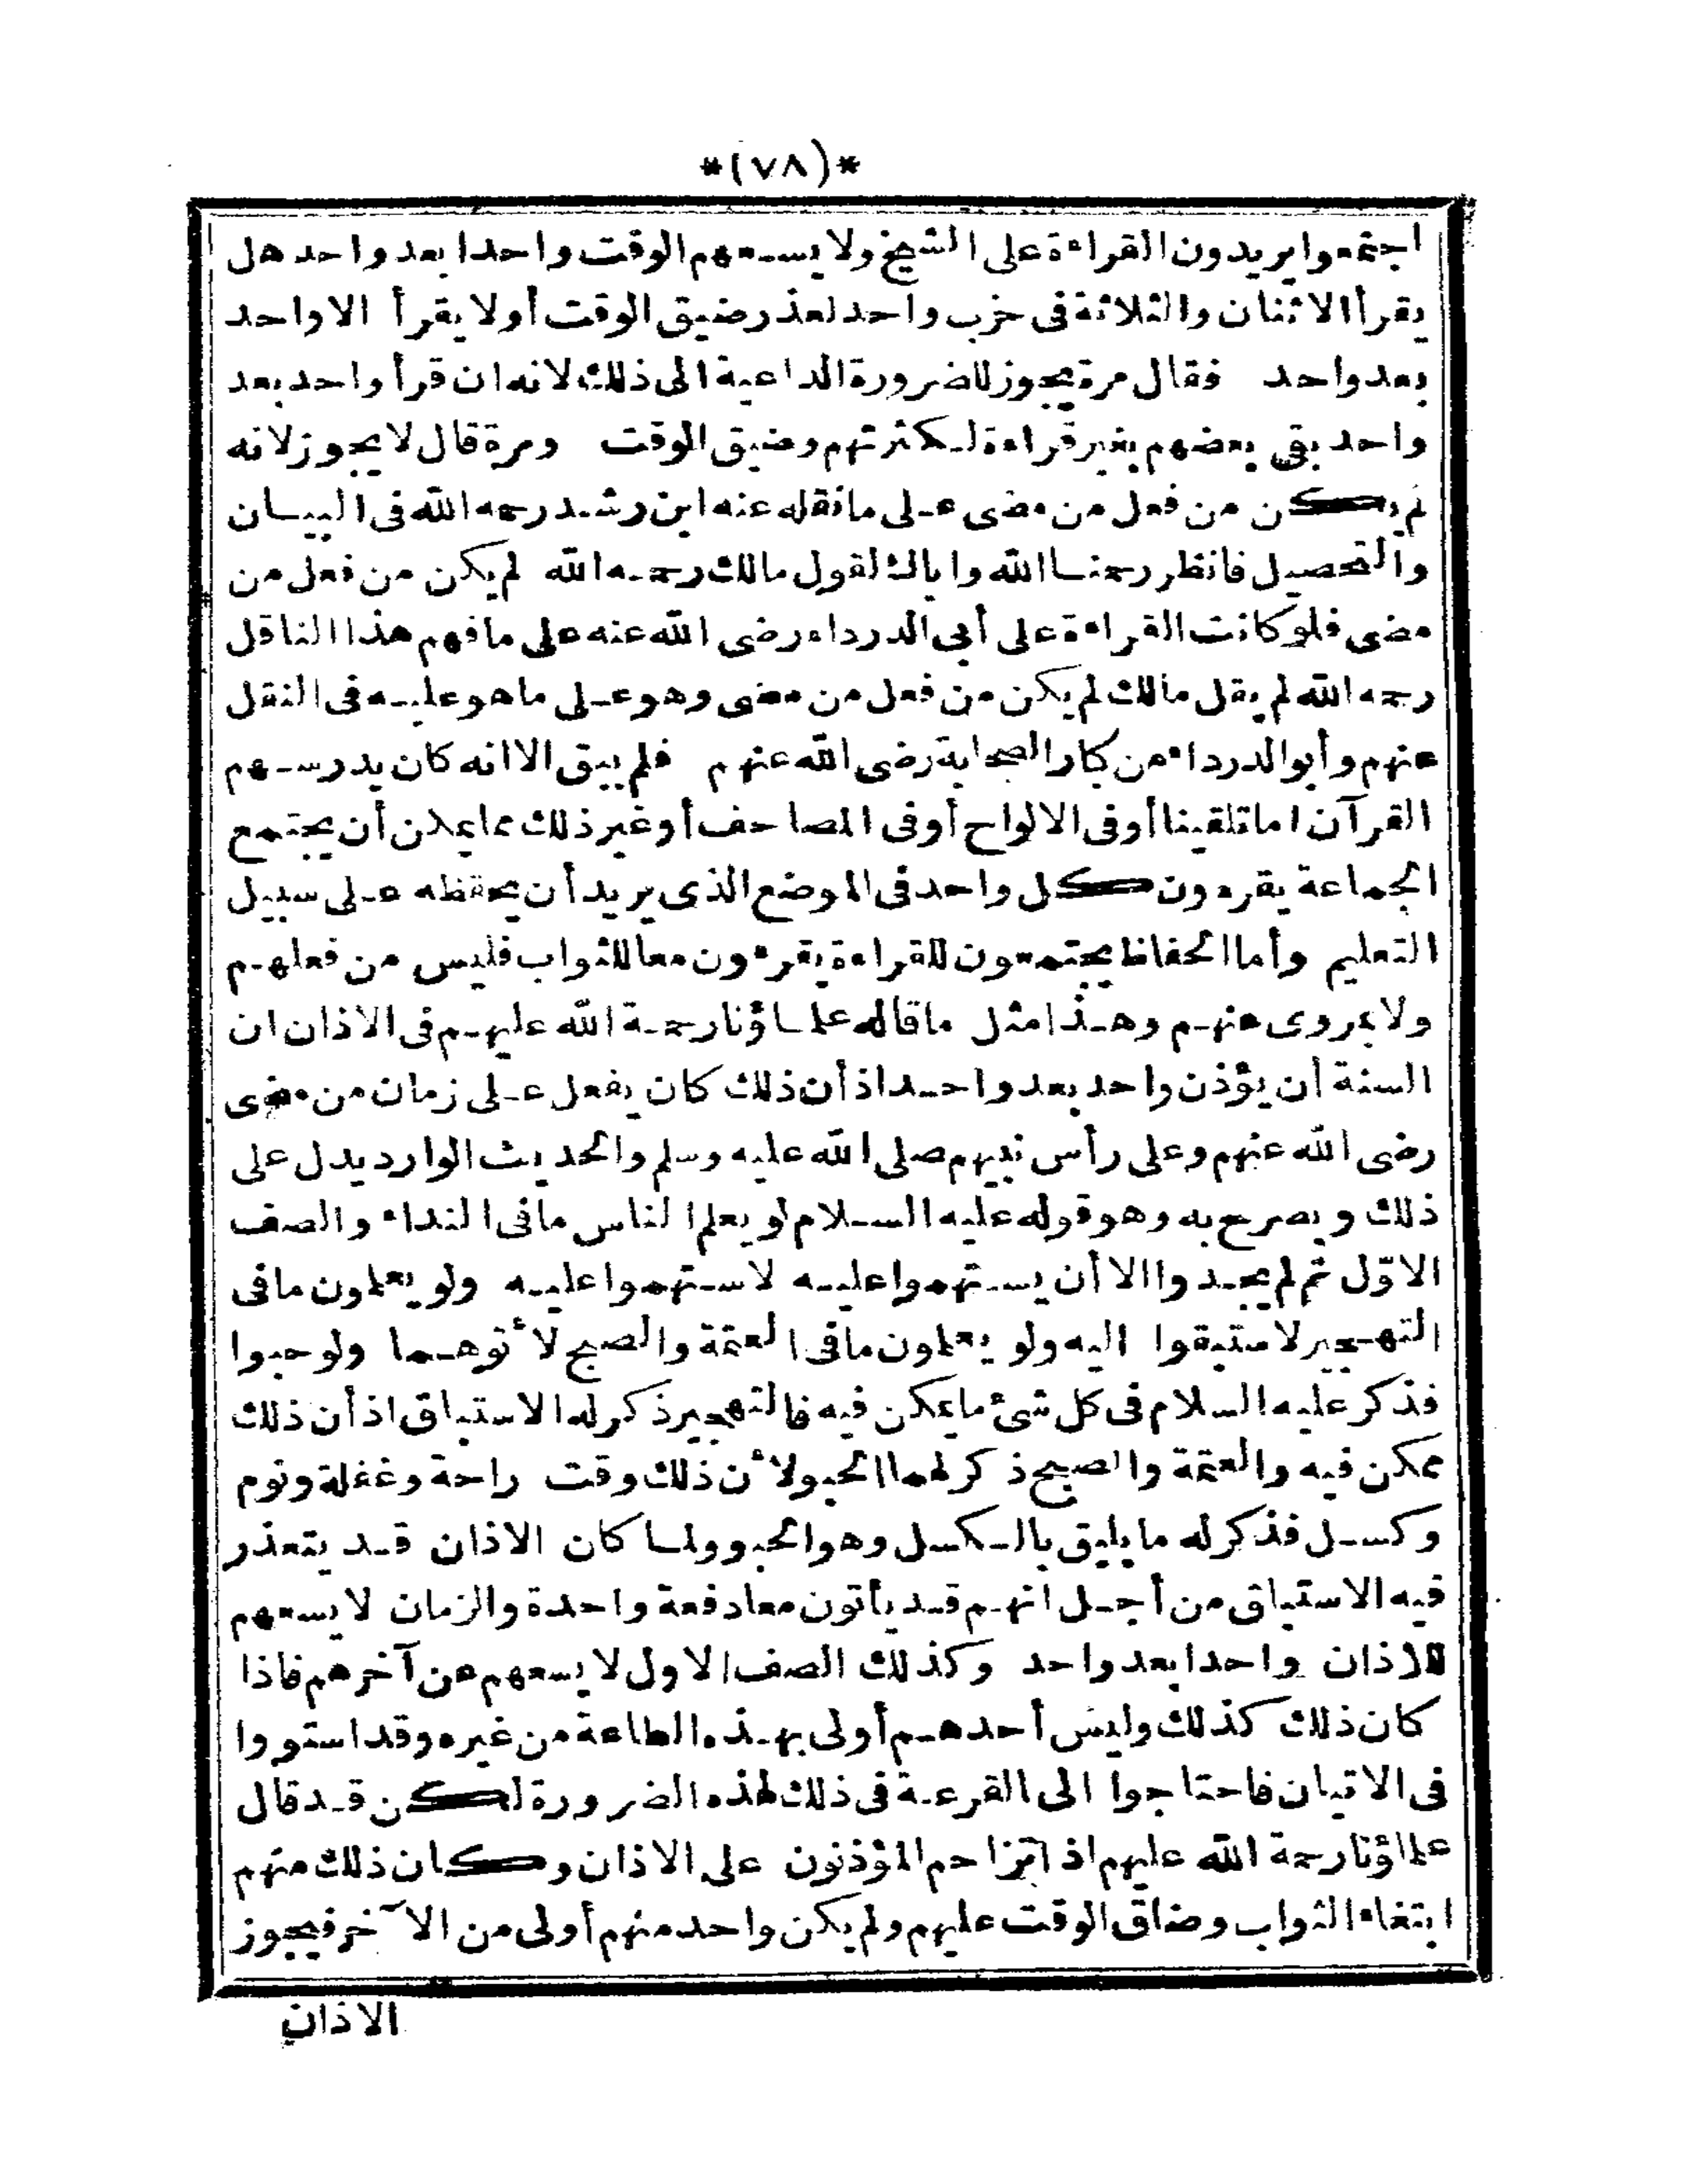 *(٧٨)*
اجتمعوا يريدون القراءة على الشيخ ولا يسعهم الوقت واحدا بعد واحد هل
يقرأ الاثنان والثلاثة فى حزب واحد لعذر ضيق الوقت أولا يقرأ الا واحد
بعد واحد فقال مرة يجوز للضرورة الداعية الى ذلك لانه ان قرأ واحد بعد
واحد بقى بعضهم بغير قراءة لكثرتهم وضيق الوقت ومرة قال لا يجوز لانه
لم يكن من فعل من مضى على ما نقله عنه ابن رشد رحمه الله فى البيان
والتحصيل فانظر رحمنا الله واياك لقول مالك رحمه الله لم يكن من فعل من
مضى فلو كانت القراءة على أبى الدرداء رضى الله عنه على ما فهم هذا الناقل
رحمه الله لم يقل مالك لم يكن من فعل من مضى وهو على ما هو عليه فى النقل
عنهم وأبو الدرداء من كبار الصحابة رضى الله عنهم فلم يبق الا انه كان يدرسهم
القرآن اما تلقينا أوفى الالواح أوفى المصاحف أو غير ذلك مما يمكن أن يجتمع
الجماعة يقرءون كل واحد فى الموضع الذى يريد أن يحفظه على سبيل
التعليم وأما الحفاظ يجتمعون للقراءة يقرءون معا للثواب فليس من فعلهم
ولا يروى عنهم وهذا مثل ما قاله علماؤنا رحمة الله عليهم فى الاذان ان
السنة أن يؤذن واحد بعد واحد اذ أن ذلك كان يفعل على زمان من مضى
رضى الله عنهم وعلى رأس نبيهم صلى الله عليه وسلم والحديث الوارد يدل على
ذلك ويصرح به وهو قوله عليه السلام لو يعلم الناس ما فى النداء والصف
الاوّل ثم لم يجدوا الا أن يستهموا عليه لاستهموا عليه ولو يعلمون ما فى
التهجير لاستبقوا اليه ولو يعلمون ما فى العتمة والصبح لأتوهما ولو حبوا
فذكر عليه السلام فى كل شئ ما يمكن فيه فالتهجير ذكر له الاستباق اذ أن ذلك
ممكن فيه والعتمة والصبح ذكر لهما الحبو لأن ذلك وقت راحة وغفلة ونوم
وكسل فذكر له ما يليق بالكسل وهو الحبو ولما كان الاذان قد يتعذر
فيه الاستباق من أجل انهم قد يأتون معا دفعة واحدة والزمان لا يسعهم
للاذان واحدا بعد واحد وكذلك الصف الاول لا يسعهم عن آخرهم فاذا
كان ذلك كذلك وليس أحدهم أولى بهذه الطاعة من غيره وقد استووا
فى الاتيان فاحتاجوا الى القرعة فى ذلك لهذه الضرورة لكن قد قال
علماؤنا رحمة الله عليهم اذ اتزاحم المؤذنون على الاذان وكان ذلك منهم
ابتغاء الثواب وضاق الوقت عليهم ولم يكن واحد منهم أولى من الآخر فيجوز
الاذان